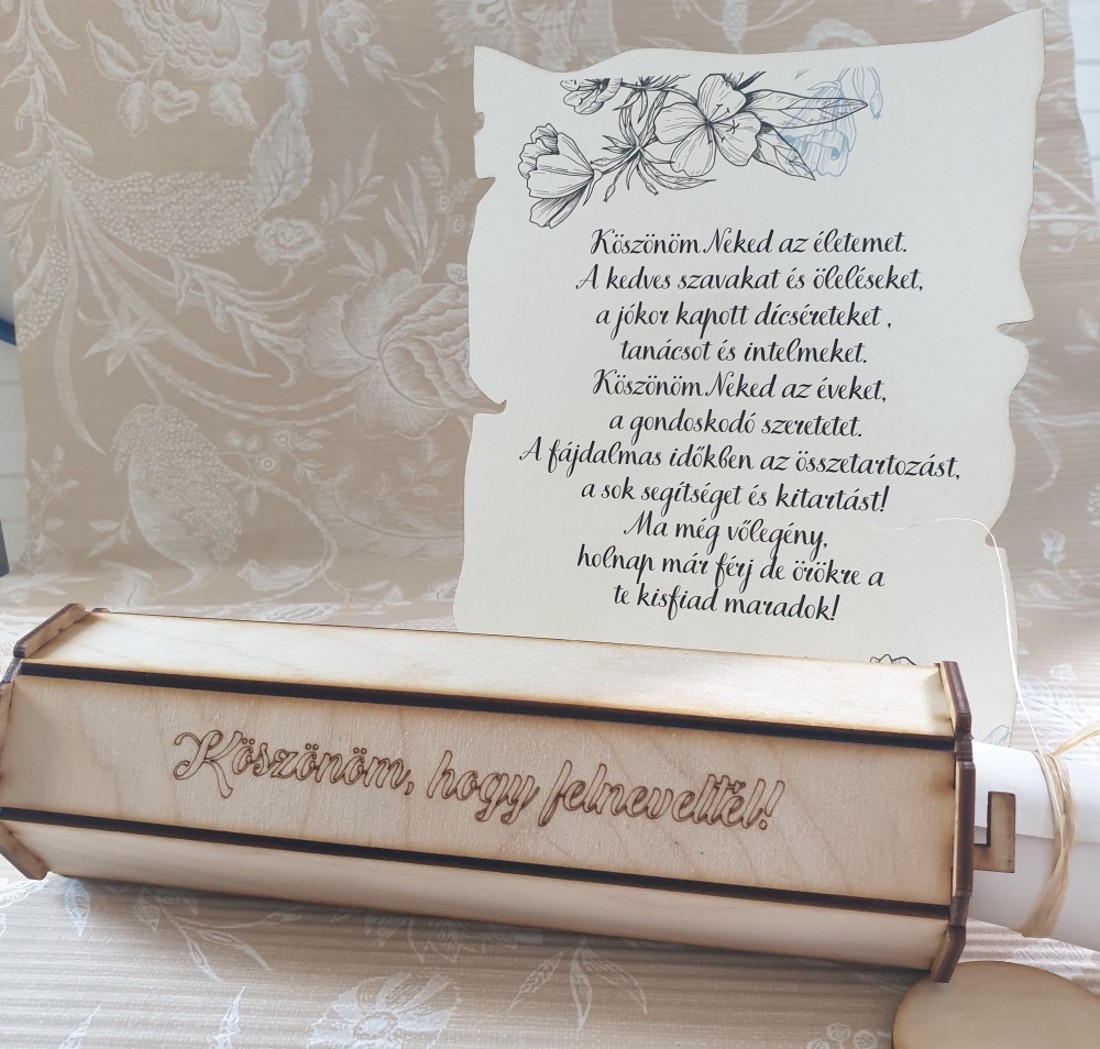 Köszönöm Neked az életemet.
A kedves szavakat és öleléseket,
a jókor kapott dícséreteket ,
tanácsot és intelmeket.
Köszönöm Neked az éveket,
a gondoskodó szeretetet.
A fájdalmas időkben az összetartozást,
a sok segítséget és kitartást!
Ma még vőlegény,
holnap már férj de örökre a
te kisfiad maradok!
Köszönöm, hogy felneveltél!